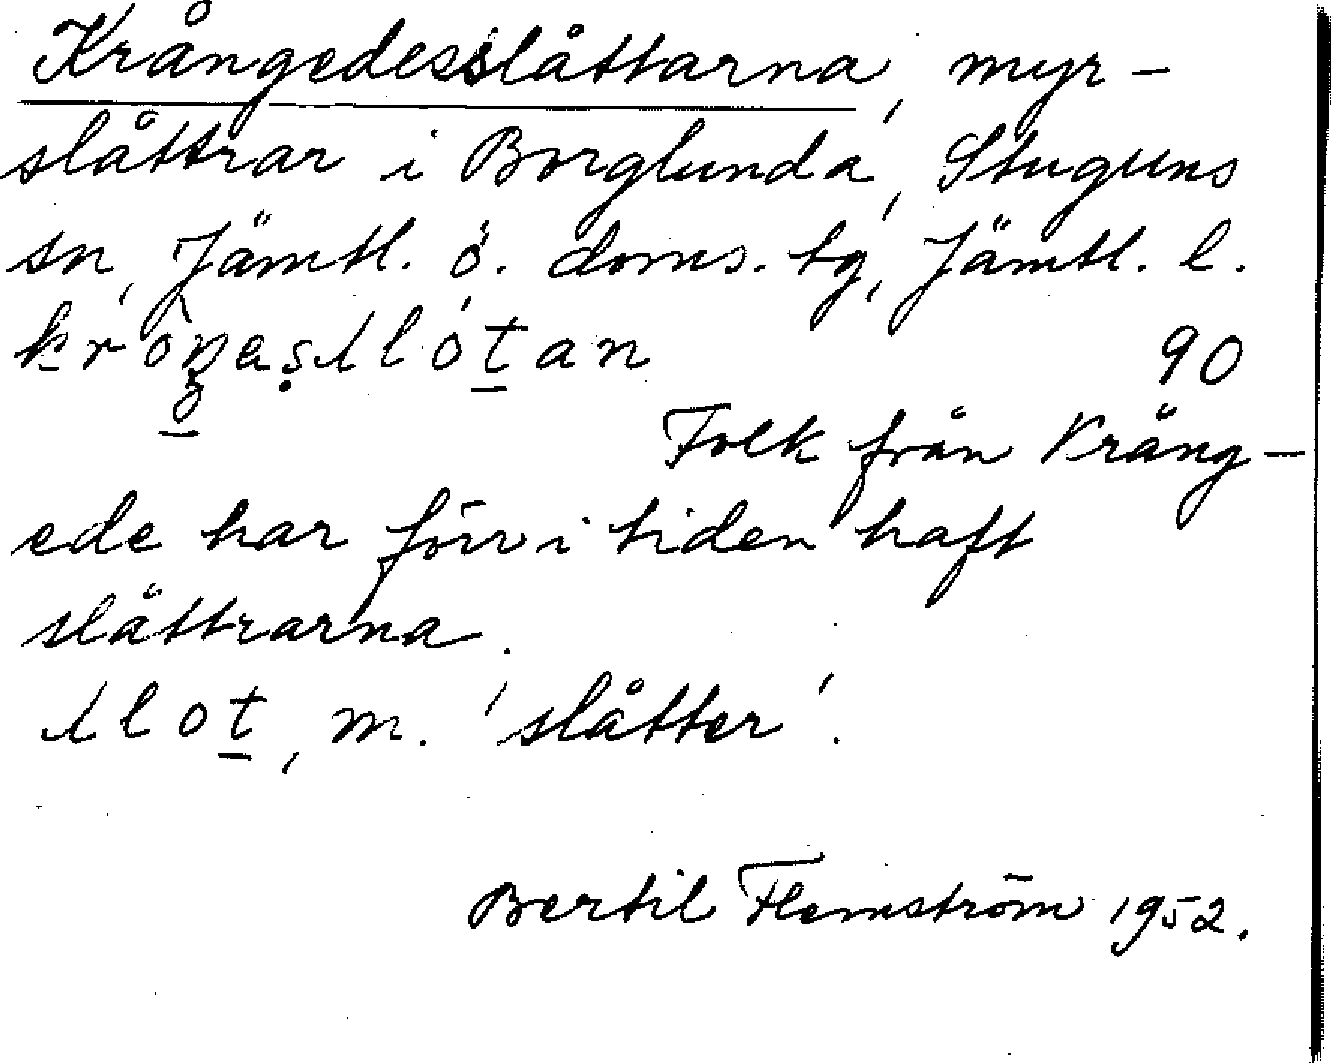 Krångedesslåttarna, myr-
slåttrar i Borglunda, Stuguns
sn, Jämtl. ö. doms. tg, Jämtl. l.
90
Folk från Kräng-
ede har förr i tiden haft
slåttrarna.
slot, m. 'slåtter'.
Bertil Flemström 1952.